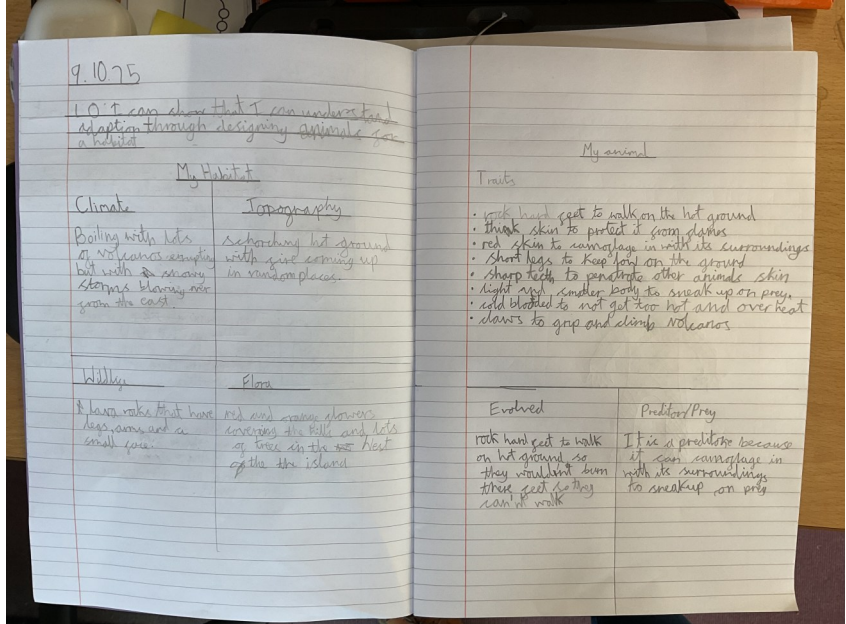 9.10.25
LO: I can show that I can understand
adaption through designing animals for
a habitat
My Habitat
Climate
Boiling with lots
of volcanos erupting
but with snowy
storms blowing over
from the east.
Topography
schorching hot ground
with fire coming up
in random places.
Wildlife
lava rocks that have
legs, arms and a
small face.
Flora
red and orange flowers
covering the hills and lots
of trees in the West
of the the island
My animal
Traits
• rock hard feet to walk on the hot ground
• think skin to protect it from flames
• red skin to camoflage in with its surroundings
• short legs to keep low on the ground
• sharp teeth to penatrate other animals skin
• light and smaller body to sneak up on prey.
• cold blodded to not get too hot and over heat
• claws to grip and climb volcanos
Evolved
rock hard feet to walk
on hot ground, so
they wouldn't burn
there feet so they
can't walk
Preditor/Prey
It is a preditore because
it can camoflage in
with its surroundings
to sneakup on prey